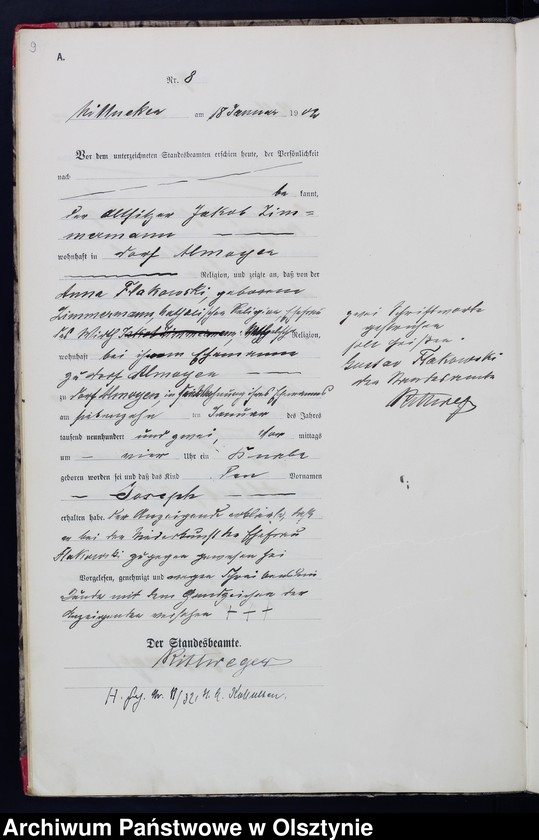 9
A.
Nr. 8
am 18 Januar 1902
Vor dem unterzeichneten Standesbeamten erschien heute, der Persönlichkeit
nach
be kannt,
der Altsitzer Jakob Zim=
mermann
wohnhaft in Dorf Almoyen
Religion, und zeigte an, daß von der
Anna Flakowski, geborene
Zimmermann, katholischer Religion, Ehefrau
des Wirth Religion,
wohnhaft bei ihrem Ehemanne
zu Dorf Almoyen
zu Dorf Almoyen in Wohnung ihres Ehemannes
am siebenzehn im Januar des Jahres
tausend neunhundert und zwei, vor mittags
um vier Uhr ein Knabe
geboren worden sei und daß das Kind den Vornamen
Joseph
erhalten habe. Der Anzeigende erklärte, daß
er bei der Niederkunft der Ehefrau
Flakowski zugegen gewesen sei
Vorgelesen, genehmigt und wegen
mit dem Handzeichen der
versehen + + +
Der Standesbeamte.
Rittweger
H. Nr. /32,
zwei Schriftworte
gestrichen
soll heißen:
Gustav Flakowski
Der Standesbeamte
Rittweger
Archiwum Państwowe w Olsztynie